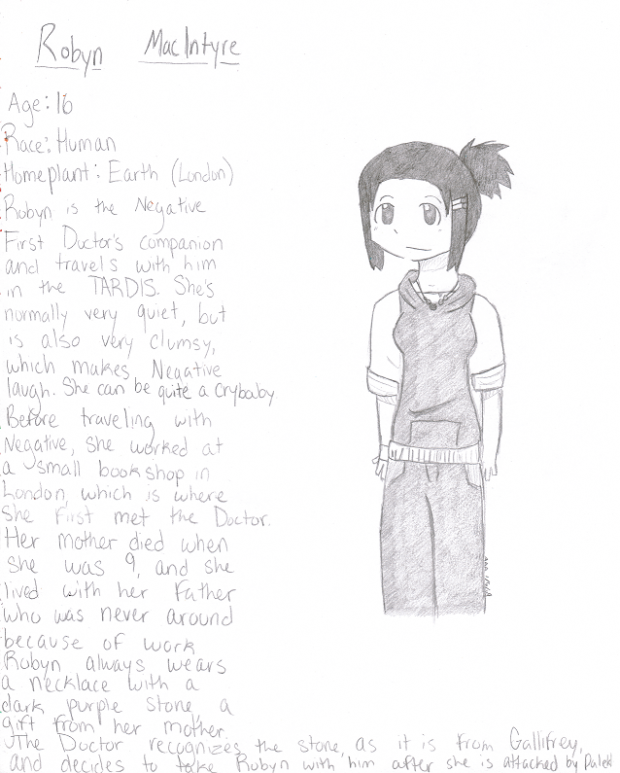 Robyn MacIntyre
Age: 16
Race: Human
Homeplant: Earth (London)
Robyn is the Negative
First Doctor's companion
and travels with him
in the TARDIS. She's
normally very quiet, but
is also very clumsy,
which makes Negative
laugh. She can be quite a crybaby
Before traveling with
Negative, she worked at
a small bookshop in
London, which is where
she first met the Doctor.
Her mother died when
she was 9, and she
lived with her Father
who was never around
because of work
Robyn always wears
a necklace with a
dark purple stone a
gift from her mother.
The Doctor recognizes the stone, as it is from Gallifrey,
and decides to take Robyn with him after she is attacked by Dalek